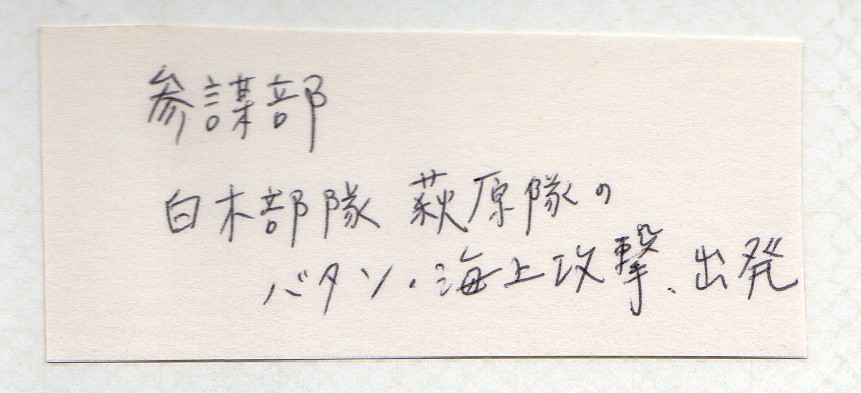 参謀部
白木部隊 萩原隊の
バタン・海上攻撃、出発